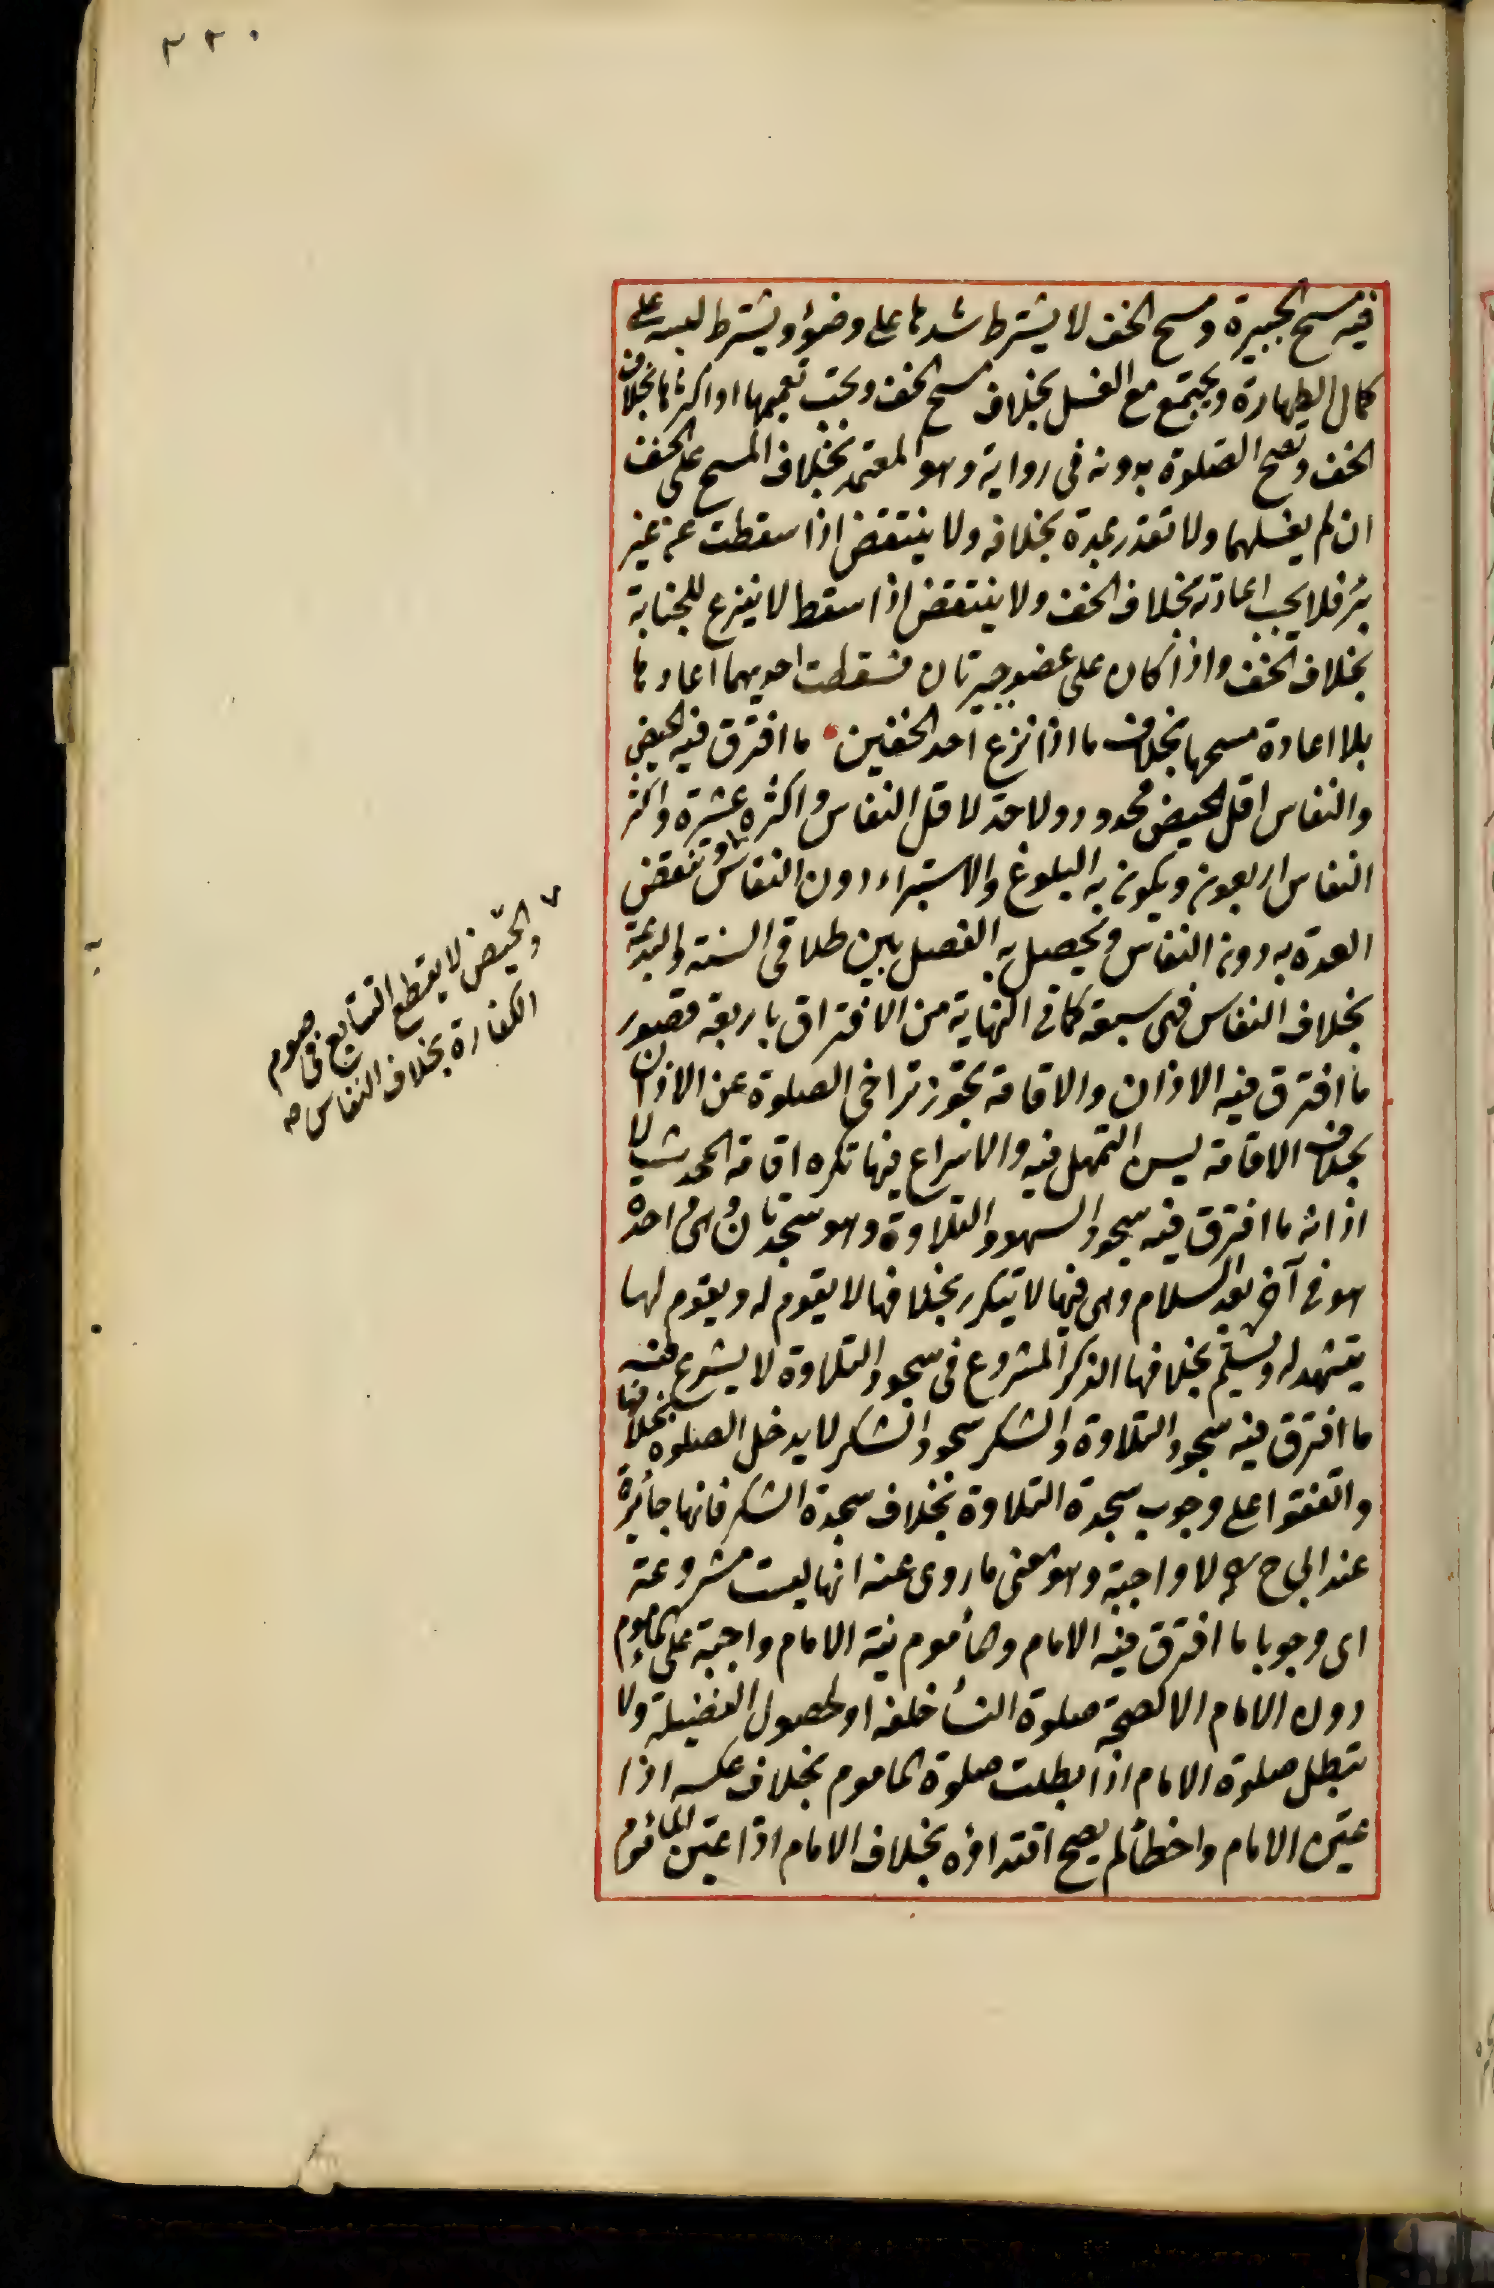 ٢٢٠
فيه مسح الجبيرة ومسح الخف لا يشترط شدها على وضوؤ ويشترط لبسه على
كمال الطهارة ويجتمع مع الغسل بخلاف مسح الخف ويجب تعميمها او اكثرها بخلاف
الخف وتصح الصلوة بدونه فى رواية وهو المعتمد بخلاف المسح على الخف
ان لم يغسلهما ولا تقدر بمدة بخلافه ولا ينتقض اذا سقطت عن غير
برء فلا يجب اعادته بخلاف الخف ولا ينتقض اذا سقط لا ينزع للجنابة
بخلاف الخف واذا كان على عضو جبيرتان فسقطت احديهما اعادها
بلا اعادة مسحها بخلاف ما اذا نزع احد الخفين ما افترق فيه الحيض
والنفاس اقل الحيض محدود ولا حد لاقل النفاس واكثره عشرة واكثر
النفاس اربعون ويكون به البلوغ والاستبراء دون النفاس وتنقض
العدة به دون النفاس ويحصل به الفصل بين طلاقى السنة والبدعة
بخلاف النفاس فهى سبعة كما فى النهاية من الافتراق باربعة قصور
ما افترق فيه الاذان والاقامة يجوز تراخى الصلوة عن الاذان
بخلاف الاقامة يسن التمهل فيه والاسراع فيها تكره اقامة المحدث لا
اذانه ما افترق فيه سجود السهو والتلاوة وهو سجدتان وهى واحدة
هو فى آخرها بعد السلام وهى فيها لا يتكرر بخلافها لا يقوم له ويقوم لها
يتشهد له ويسلم بخلافها الذكر المشروع فى سجود التلاوة لا يشرع فيه
ما افترق فيه سجود التلاوة والشكر سجود الشكر لا يدخل الصلوة بخلافها
واتفقوا على وجوب سجدة التلاوة بخلاف سجدة الشكر فانها جائزة
عند ابى ح لا واجبة وهو معنى ما روى عنه انها ليست مشروعة
اى وجوبا ما افترق فيه الامام والمأموم نية الامام واجبة على المأموم
دون الامام الا لصحة صلوة النسأ خلفه او لحصول الفضيلة ولا
تبطل صلوة الامام اذا بطلت صلوة الماموم بخلاف عكسه اذا
عين الامام واخطأ لم يصح اقتداؤه بخلاف الامام اذا عين المأموم
والحيض لا يقطع التتابع فى صوم
الكفارة بخلاف النفاس صه